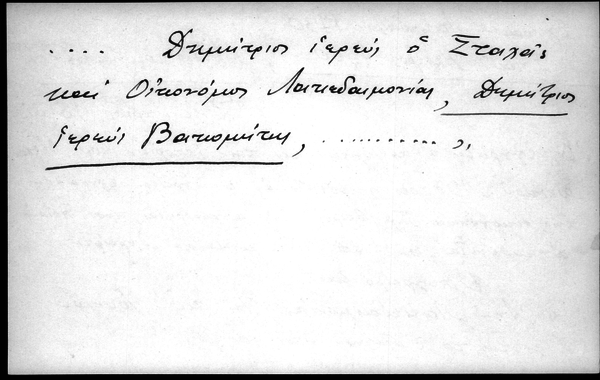 .... Δημήτριος ἱερεύς ὁ Σταχᾶς
καί Οἰκονόμος Λακεδαιμονίας, Δημήτριος
ἱερεύς Βατομίτης, ........... »,